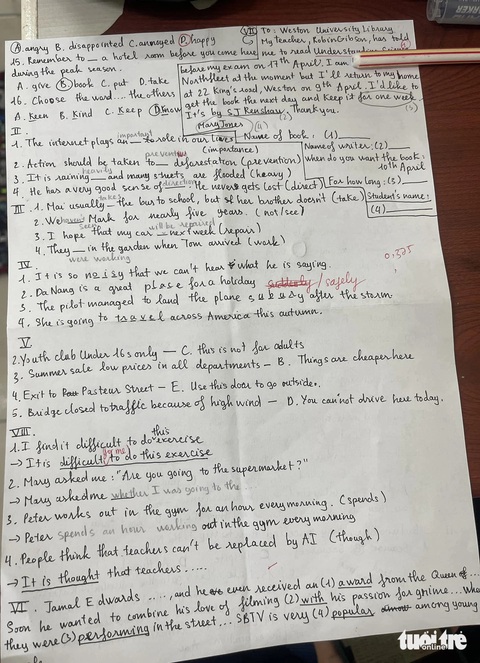 A. angry B. disappointed C. annoyed D. happy
15. Remember to _ a hotel room before you come here
during the peak season.
A. give B. book C. put D. take
16. Choose the word .... the others
A. Keen B. Kind C. Keep D. Know
VII To: Weston University Library
My teacher, Robin Gribson, has told
me to read Understanding Science
before my exam on 17th April. I am
Northfleet at the moment but I'll return to my home
at 22 King's road, Weston on 9th April. I'd like to
get the book the next day and keep it for one week.
It's by S.J Renshaw. Thank you.
Mary Jones
(2)
(3)
(4)
II.
important
1. The internet plays an _ to role in our lives
(importance)
preventing
2. Action should be taken to _ deforestation (prevention)
heavily
3. It is raining _ and many streets are flooded (heavy)
4. He has a very good sense of direction He never gets lost (direct)
Name of book: (1)
Name of writer: (2)
When do you want the book:
10th April
For how long: (3)
Student's name:
(4)
III
take
1. Mai usually _ the bus to school, but her brother doesn't (take)
seen
2. We haven't Mark for nearly five years. (not/see)
will be repaired
3. I hope that my car _ next week (repair)
4. They _ in the garden when Tom arrived (work)
were working
IV.
1. It is so noisy that we can't hear what he is saying.
0,375
2. Da Nang is a great place for a holiday
suddenly / safely
3. The pilot managed to land the plane after the storm.
4. She is going to travel across America this autumn.
V.
2. Youth club Under 16s only — C. this is not for adults
3. Summer sale low prices in all departments — B. Things are cheaper here
4. Exit to Pasteur Street — E. Use this door to go outside.
5. Bridge closed to traffic because of high wind — D. You cannot drive here today.
VIII.
1. I find it difficult to do this exercise
for me
→ It is difficult to do this exercise
2. Mary asked me: "Are you going to the supermarket?"
→ Mary asked me whether I was going to the...
3. Peter works out in the gym for an hour every morning. (spends)
→ Peter spends an hour working out in the gym every morning
4. People think that teachers can't be replaced by AI (though)
→ It is thought that teachers.....
VI. Jamal Edwards ...., and he even received an (1) award from the Queen of...
Soon he wanted to combine his love of filming (2) with his passion for grime...
they were (3) performing in the street... SBTV is very (4) popular among young
tuổi trẻ
online